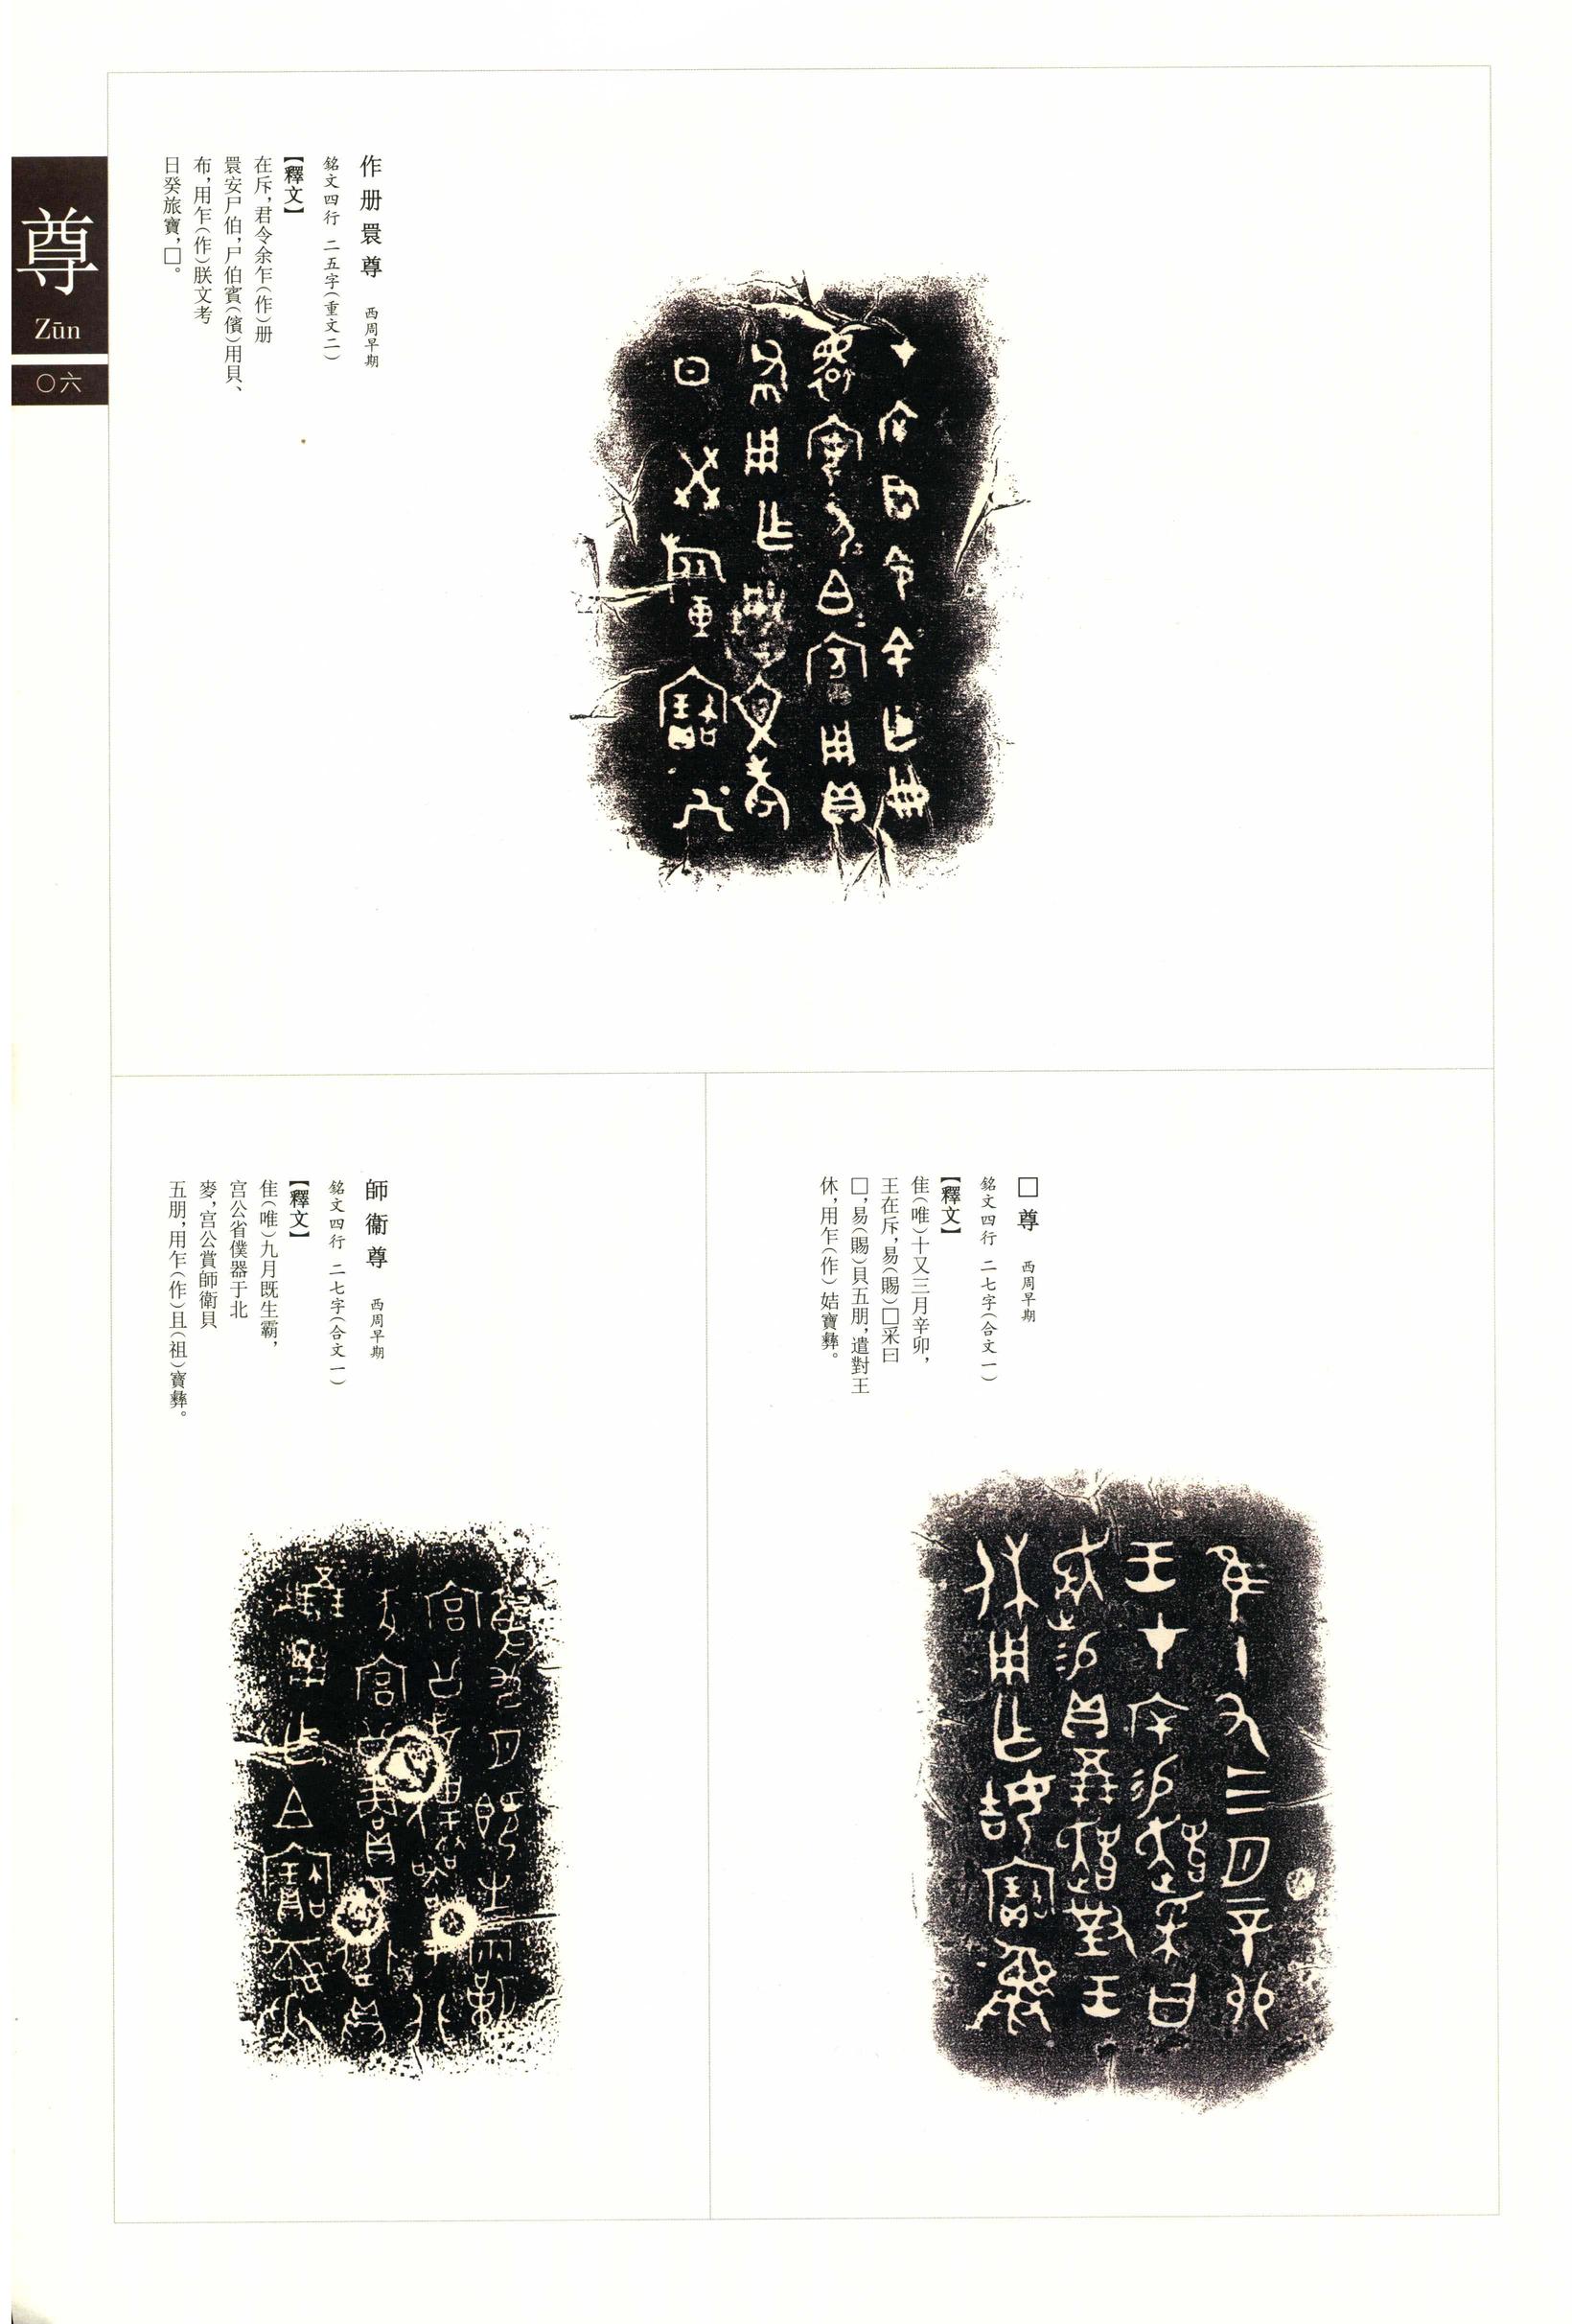 尊
Zūn
〇六
作册睘尊 西周早期
銘文四行 二五字(重文二)
【釋文】
在斥，君令余乍(作)册
睘安尸伯，尸伯賓(儐)用貝、
布，用乍(作)朕文考
日癸旅寶，□。
□尊 西周早期
銘文四行 二七字(合文一)
【釋文】
隹(唯)十又三月辛卯，
王在斥，易(賜)□采曰
□，易(賜)貝五朋，遣對王
休，用乍(作)姞寶彝。
師衞尊 西周早期
銘文四行 二七字(合文一)
【釋文】
隹(唯)九月既生霸，
宫公省僕器于北
麥，宫公賞師衛貝
五朋，用乍(作)且(祖)寶彝。